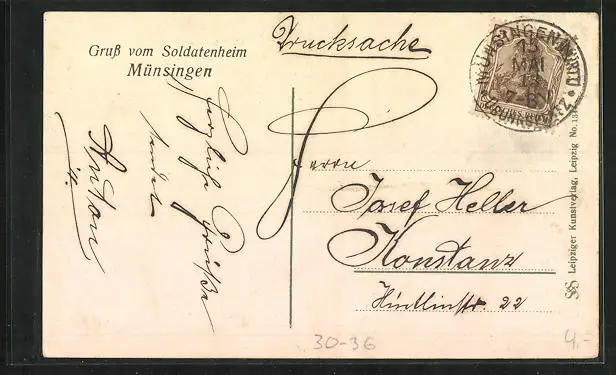 Gruß vom Soldatenheim
Münsingen
Drucksache
Herzliche Grüße
sendet
Anton
Herrn
Josef Heller
Konstanz
22
MÜNSINGEN
13
MAI
7-8
Leipziger Kunstverlag, Leipzig No.
30-36
4.-